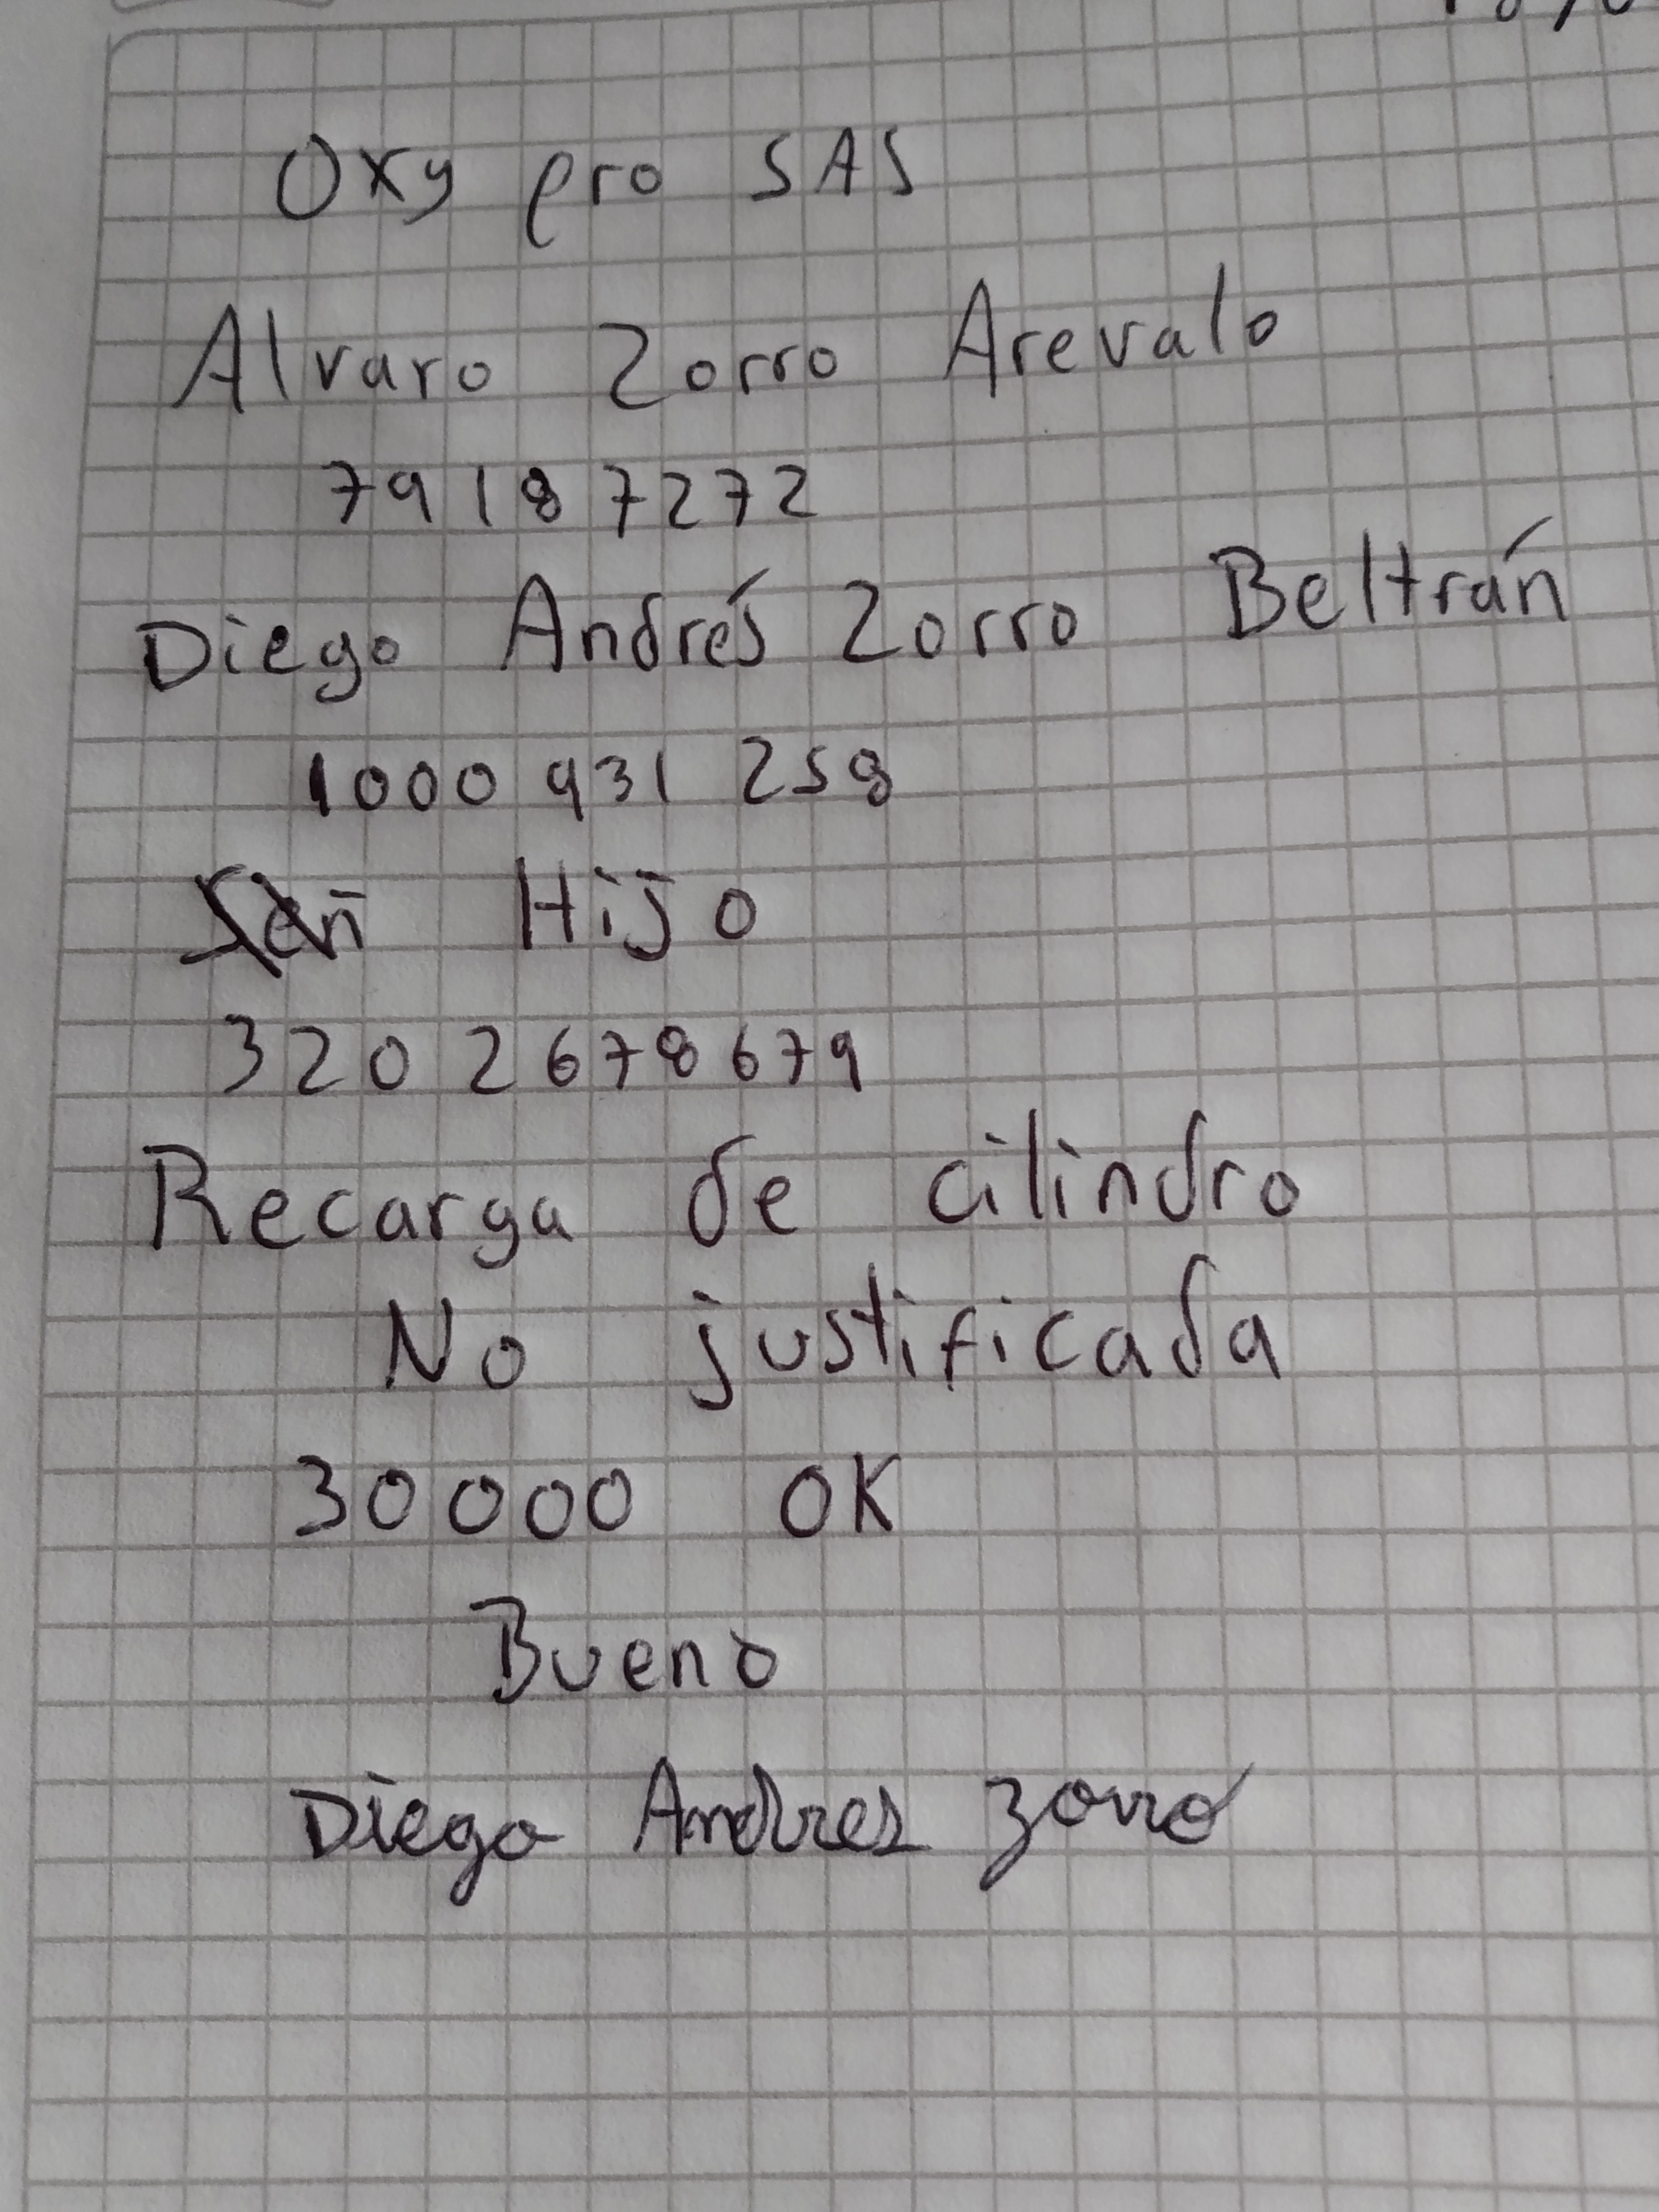 Oxy pro SAS
Alvaro Zorro Arevalo
79187272
Diego Andrés Zorro Beltrán
1000 931 258
Hijo
320 2678679
Recarga de cilindro
No justificada
30000 OK
Bueno
Diego Andres Zorro